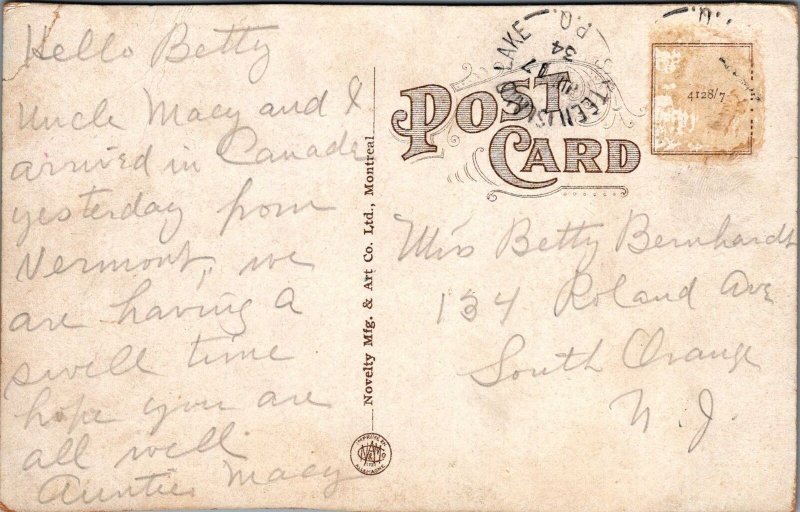 Hello Betty
Uncle Macy and I
arrived in Canada
yesterday from
Vermont, we
are having a
swell time
hope you are
all well
Auntie Macy
Novelty Mfg. & Art Co. Ltd., Montreal
POST
CARD
LAKE
P.Q.
34
4128/7
Miss Betty Bernhardt
134 Roland Ave
South Orange
N. J.